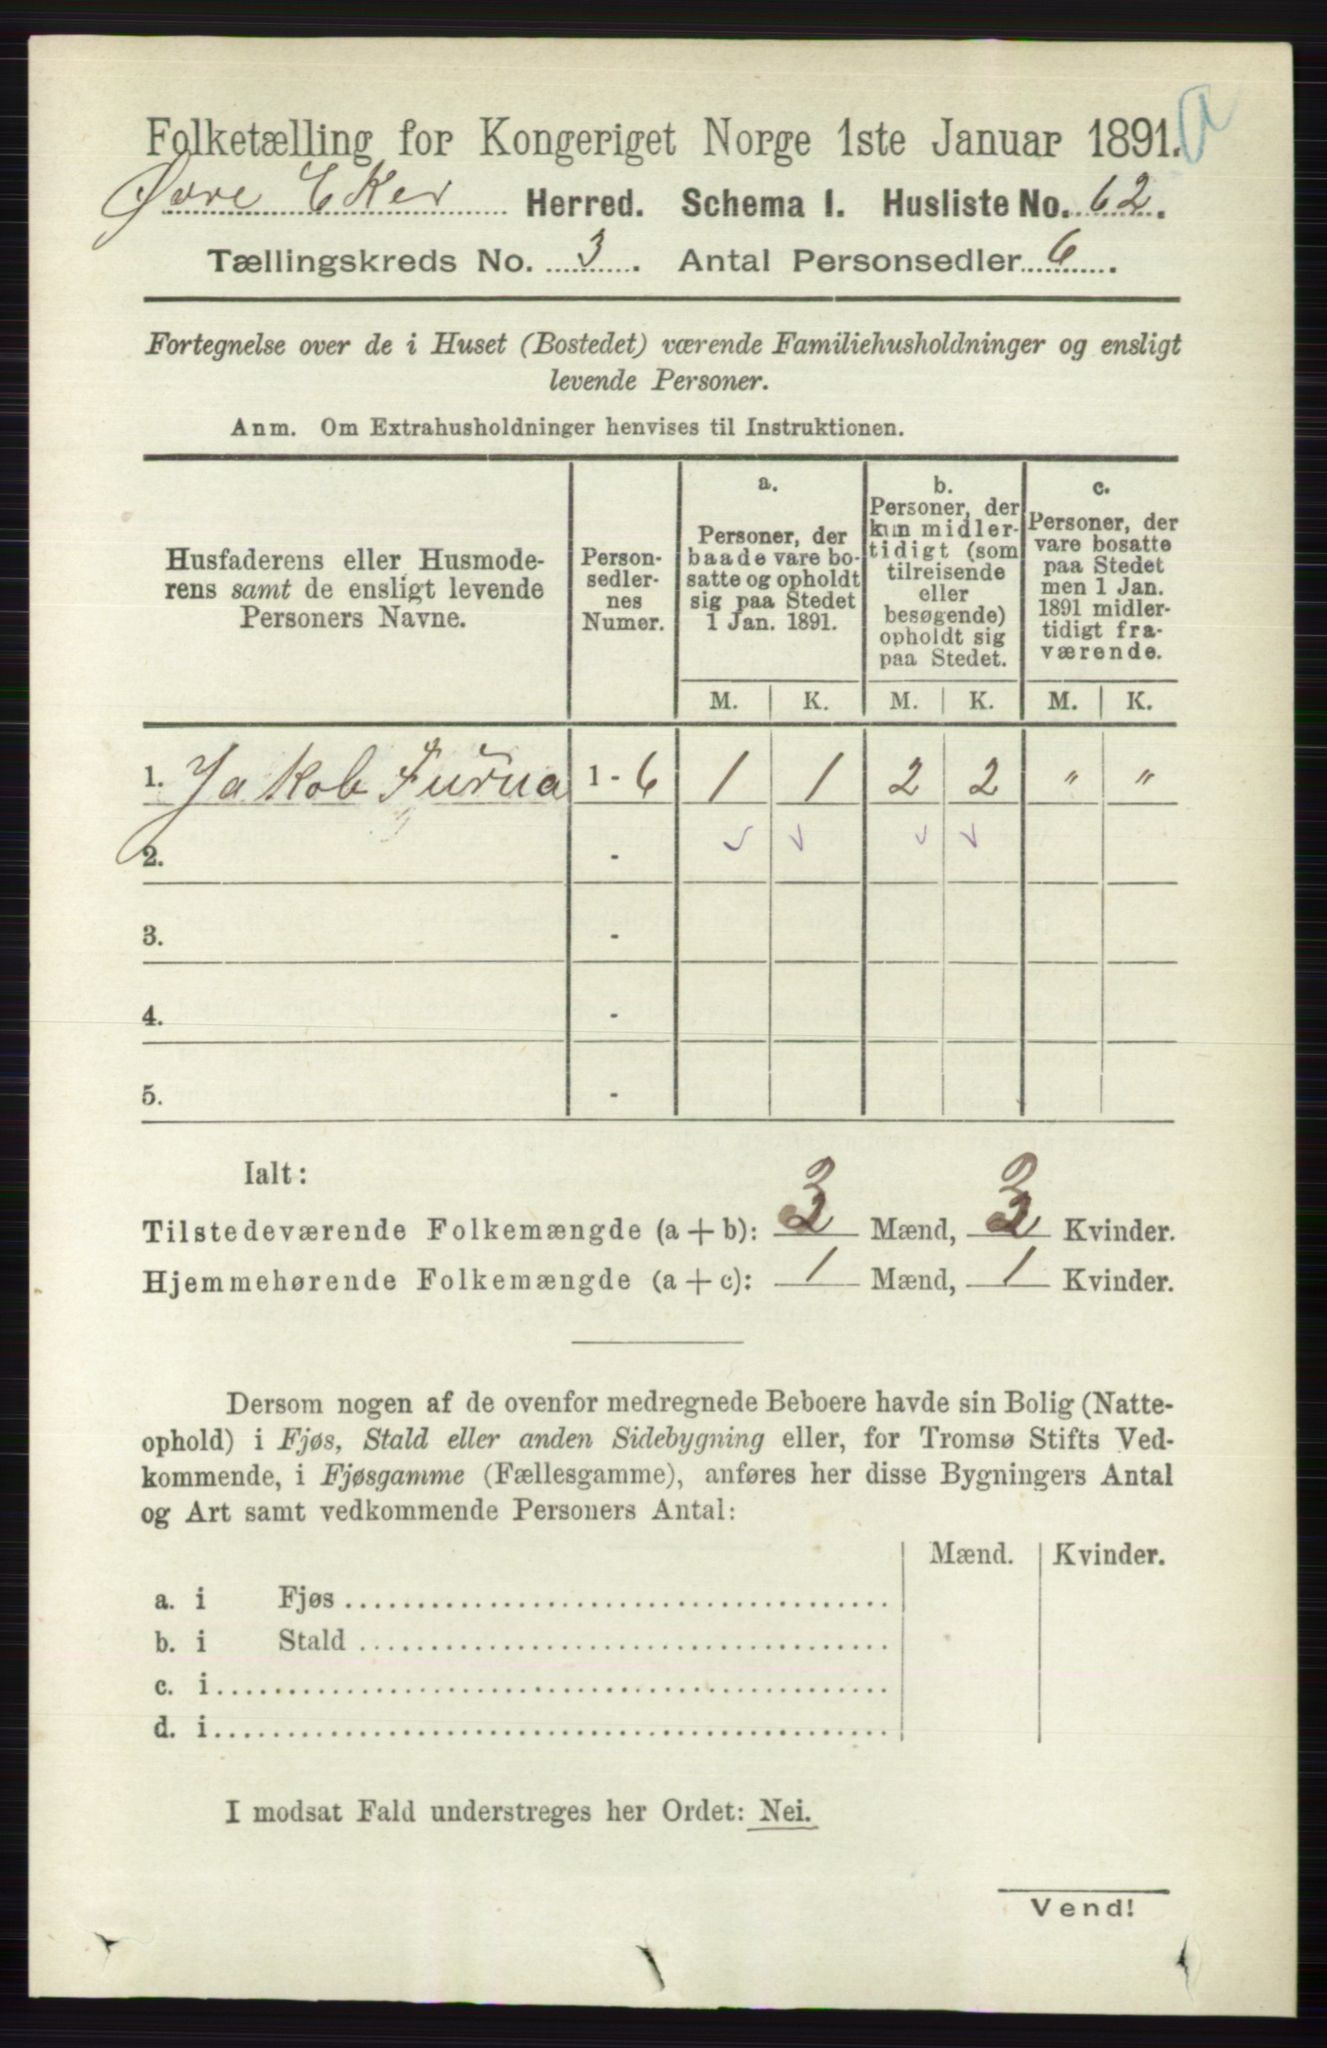 Folketælling for Kongeriget Norge 1ste Januar 1891. a
Øvre Eker Herred. Schema I. Husliste No. 62.
Tællingskreds No. 3. Antal Personsedler 6.
Fortegnelse over de i Huset (Bostedet) værende Familiehusholdninger og ensligt
levende Personer.
Anm. Om Extrahusholdninger henvises til Instruktionen.
Husfaderens eller Husmode-
rens samt de ensligt levende
Personers Navne.
Person-
sedler-
nes
Numer.
a.
Personer, der
baade vare bo-
satte og opholdt
sig paa Stedet
1 Jan. 1891.
b.
Personer, der
kun midler-
tidigt (som
tilreisende
eller
besøgende)
opholdt sig
paa Stedet.
c.
Personer, der
vare bosatte
paa Stedet
men 1 Jan.
1891 midler-
tidigt fra-
værende.
M. K. M. K. M. K.
1. Jakob Furua 1 - 6 1 1 2 2 " "
2. -
3. -
4. -
5. -
Ialt:
Tilstedeværende Folkemængde (a + b): 3 Mænd, 3 Kvinder.
Hjemmehørende Folkemængde (a + c): 1 Mænd, 1 Kvinder.
Dersom nogen af de ovenfor medregnede Beboere havde sin Bolig (Natte-
ophold) i Fjøs, Stald eller anden Sidebygning eller, for Tromsø Stifts Ved-
kommende, i Fjøsgamme (Fællesgamme), anføres her disse Bygningers Antal
og Art samt vedkommende Personers Antal:
Mænd. Kvinder.
a. i Fjøs
b. i Stald
c. i
d. i
I modsat Fald understreges her Ordet: Nei.
Vend!